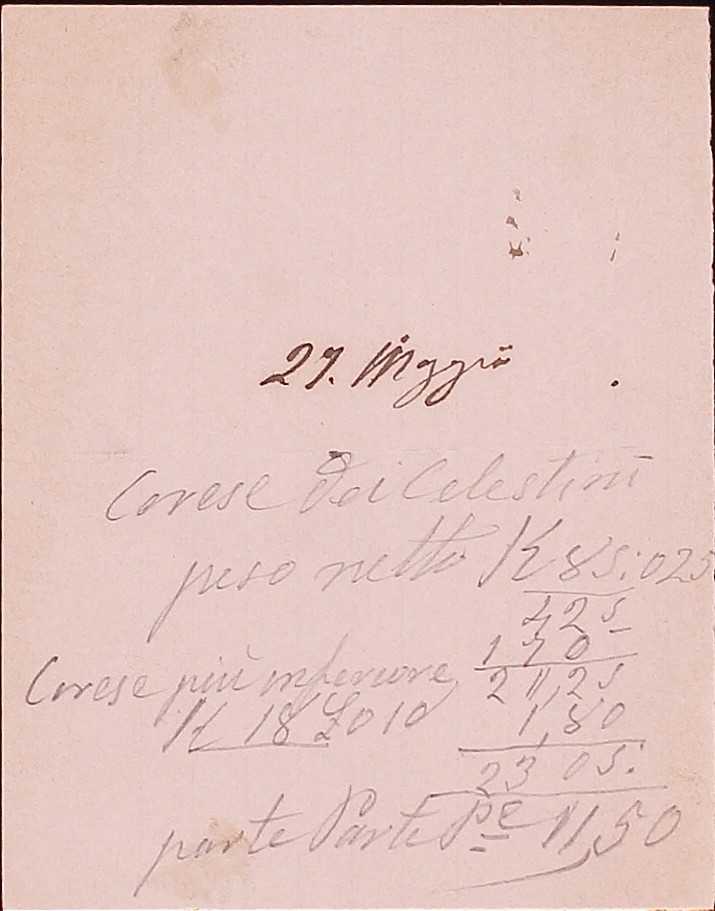 27. Maggio
Cerese dei Celestini
peso netto K 85:025
4,25
Cerese più inferiore 170
K 18 £ 010 21,25
1,80
23 05.
parte Parte Pe 11,50